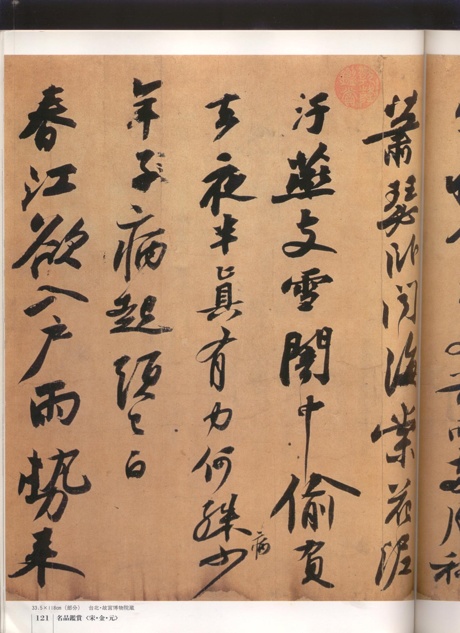 蕭瑟卧聞海棠花泥
汙燕支雪闇中偷負
去夜半真有力何殊少
病
年子病起頭已白
春江欲入戶雨勢来
33.5×118cm（部分） 台北・故宮博物院蔵
121 名品鑑賞〈宋・金・元〉